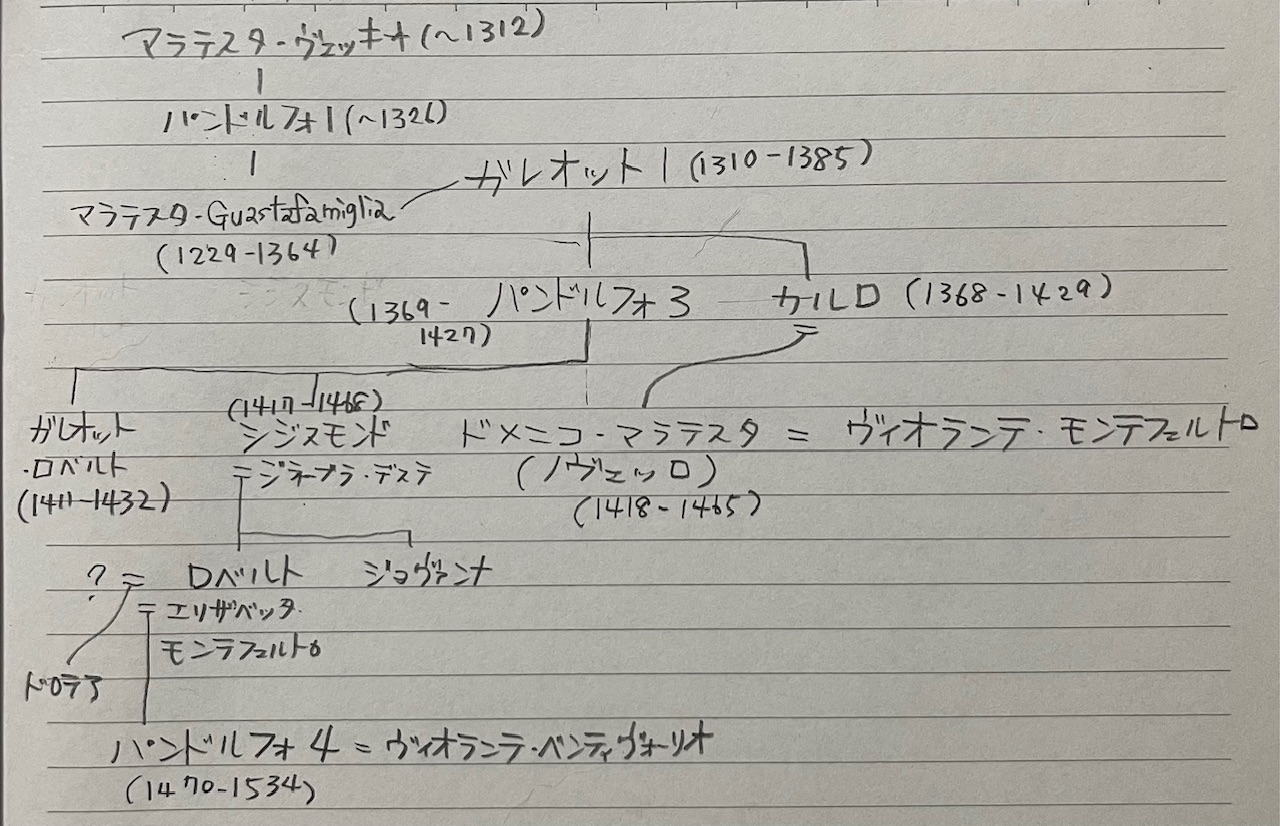 マラテスタ・ヴェッキオ(~1312)
パンドルフォ1(~1326)
ガレオット1(1310-1385)
マラテスタ・Guastafamiglia
(1229-1364)
(1369-
1427)
パンドルフォ3
カルロ(1368-1429)
(1417-1468)
ガレオット
・ロベルト
(1411-1432)
シジスモンド
=ジネーブラ・デステ
ドメニコ・マラテスタ = ヴィオランテ・モンテフェルトロ
(ノヴェッロ)
(1418-1465)
? = ロベルト ジョヴァンナ
=エリザベッタ・
モンテフェルトロ
ドロテア
パンドルフォ4 = ヴィオランテ・ベンティヴォーリオ
(1470-1534)